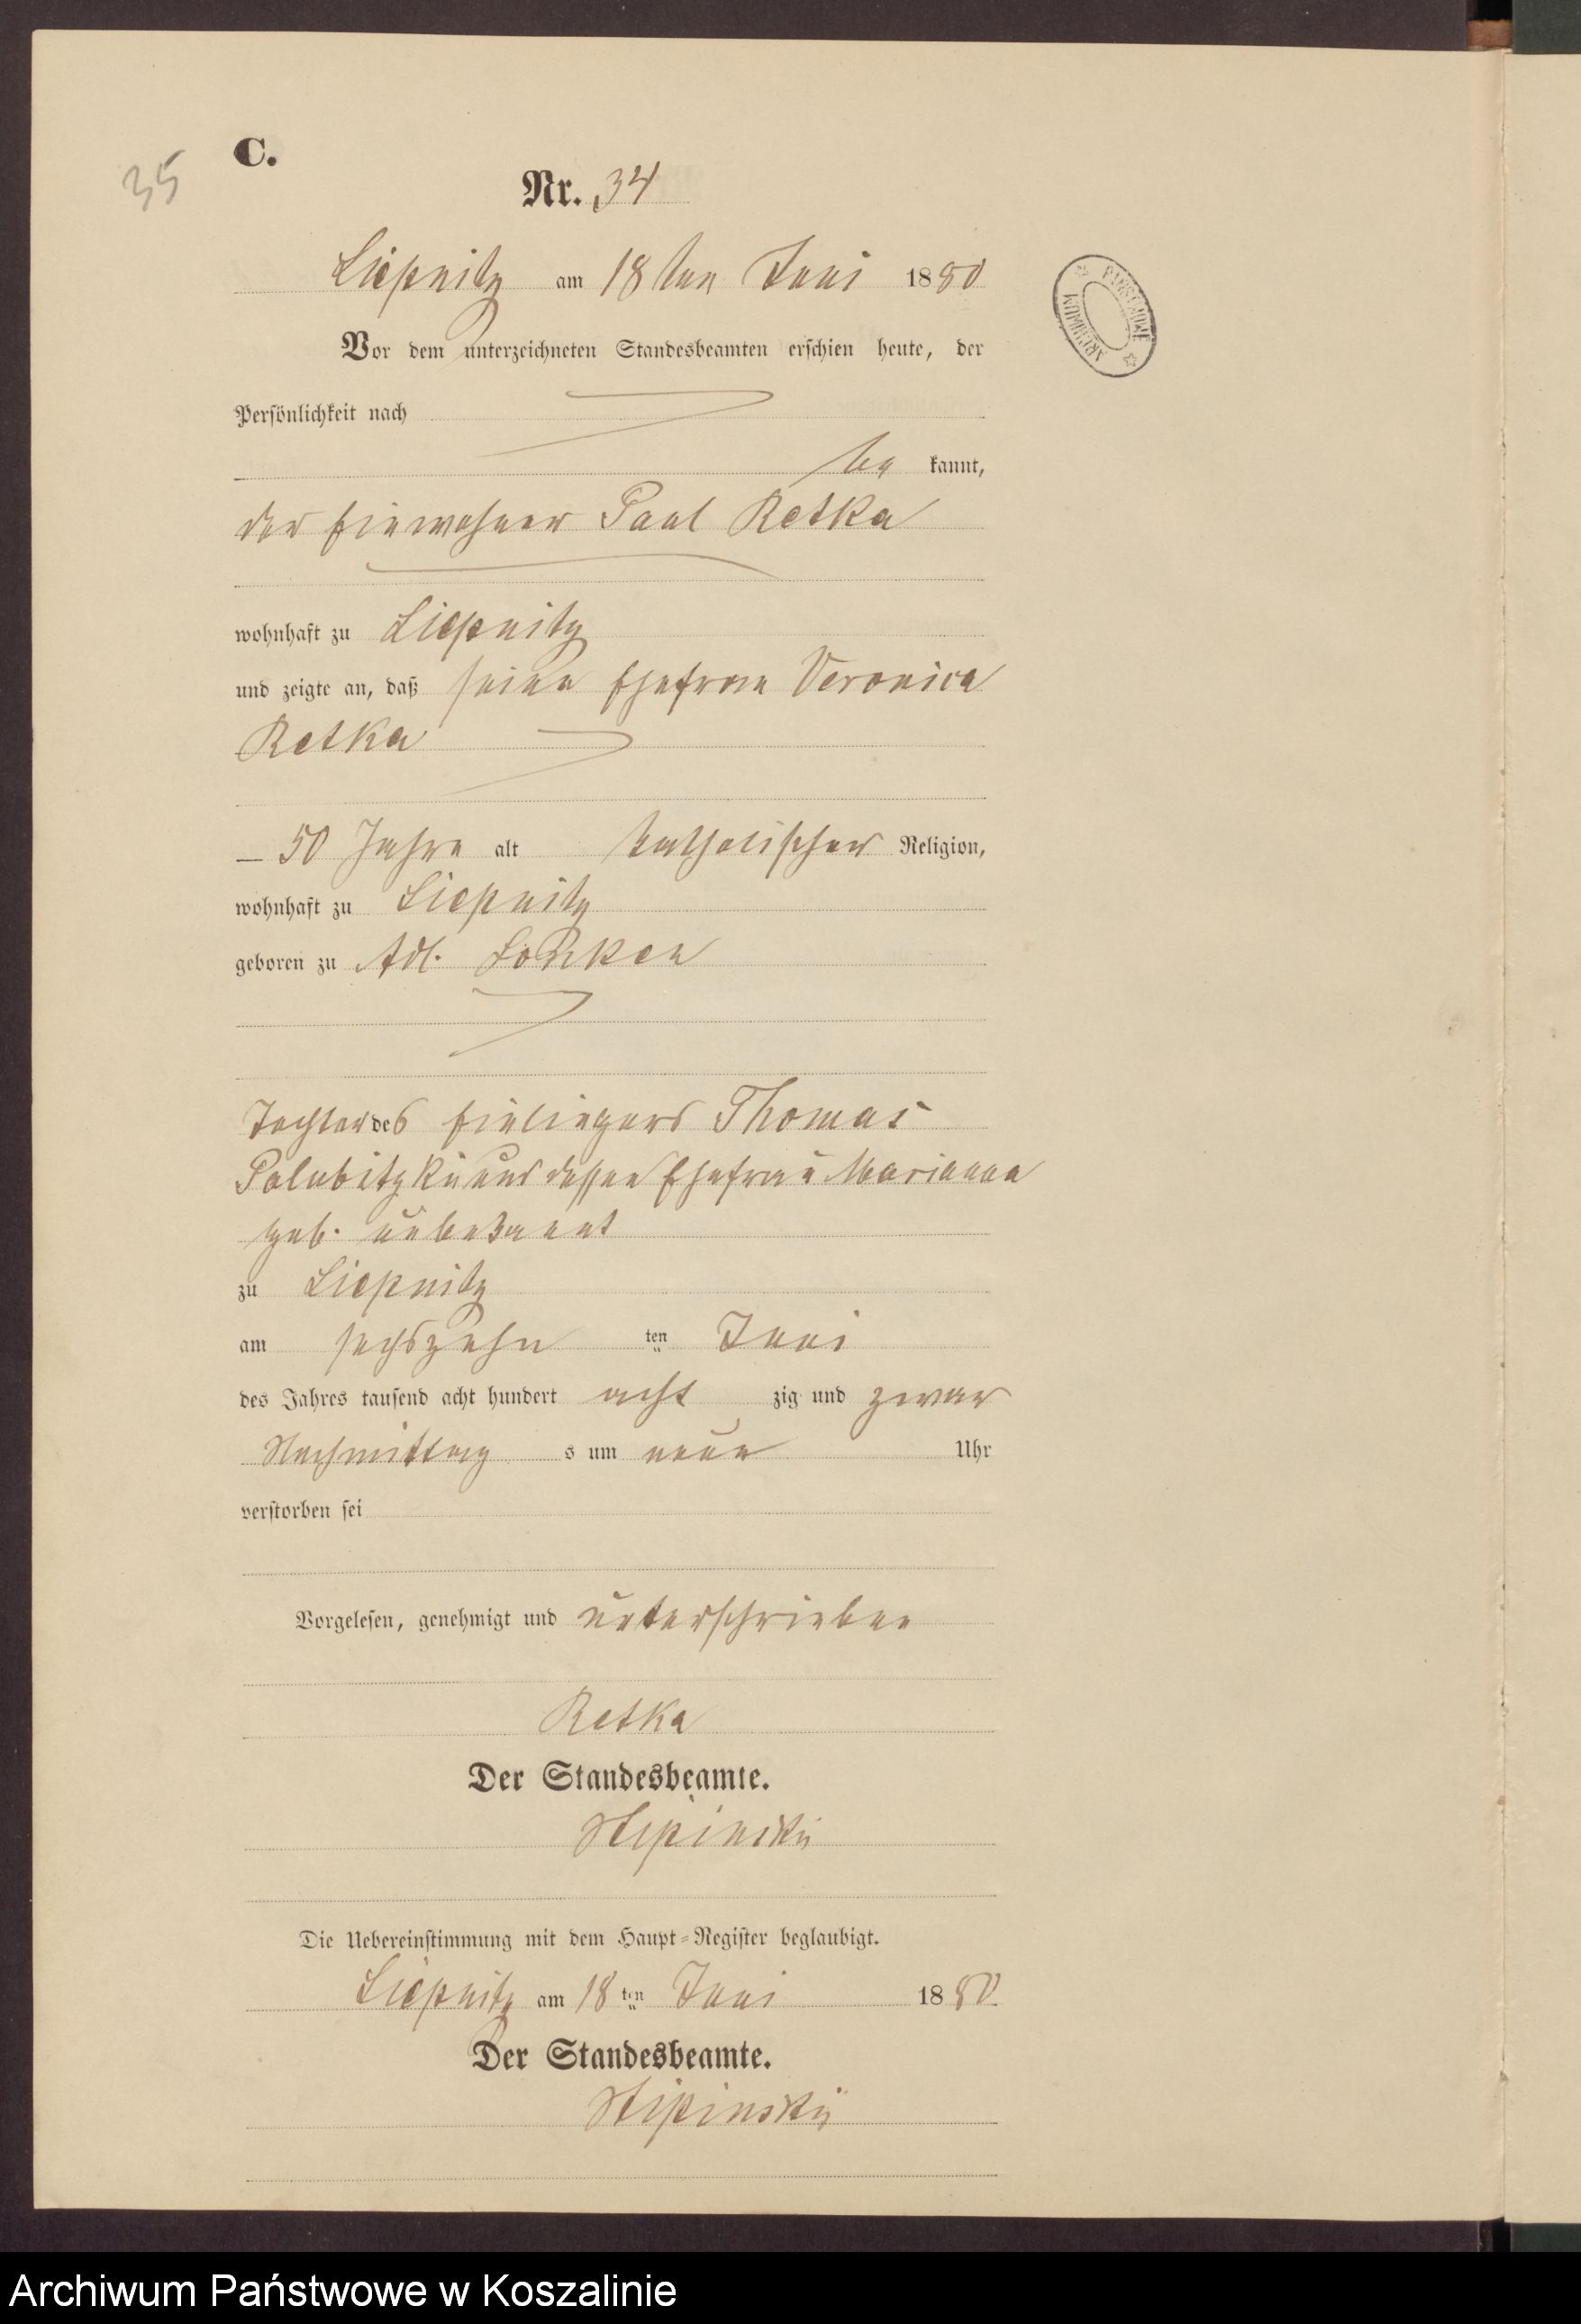 35
C.
Nr. 34
Liepnitz am 18ten Juni 1880
Vor dem unterzeichneten Standesbeamten erschien heute, der
Persönlichkeit nach
be kannt,
der Einwohner Paul Retka
wohnhaft zu Liepnitz
und zeigte an, daß seine Ehefrau Veronica
Retka
50 Jahre alt katholischer Religion,
wohnhaft zu Liepnitz
geboren zu Adl. Lonken
Tochter des Einliegers Thomas
Palubitzki und dessen Ehefrau Marianna
geb. unbekannt
zu Liepnitz
am sechszehn ten Juni
des Jahres tausend acht hundert acht zig und zwar
Nachmittag s um neun Uhr
verstorben sei
Vorgelesen, genehmigt und unterschrieben
Retka
Der Standesbeamte.
Die Uebereinstimmung mit dem Haupt-Register beglaubigt.
Liepnitz am 18 ten Juni 1880.
Der Standesbeamte.
ARCHIWUM PAŃSTWOWE
Archiwum Państwowe w Koszalinie